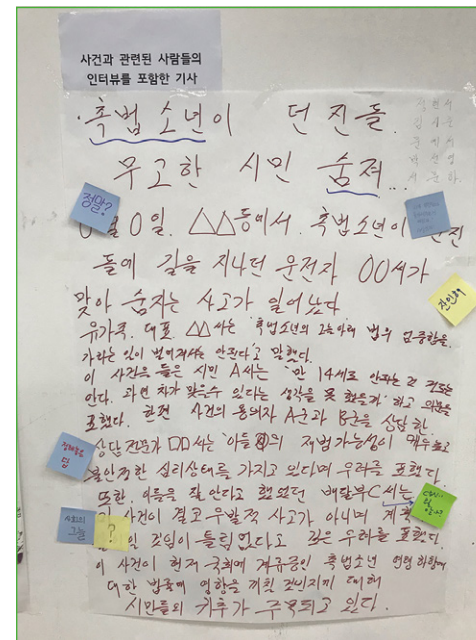 사건과 관련된 사람들의
인터뷰를 포함한 기사
·촉법소년이 던진돌.
무고한 시민 숨져...
정말?
0월 0일. △△동에서. 촉법소년이
돌에 길을 지나던 운전자 00씨가
잔인해
맞아 숨지는 사고가 일어났다
유가족. 대표. △△씨는 '촉법소년의 그늘아래 법의
가하는 일이 벌어져서는 안된다'고 말했다.
이 사건을 들은 시민 A씨는 만 14세로 안되는 건
안다. 과연 차가 맞을수 있다는 생각을 못 했을까' 하고 의문을
표했다. 한편 사건의 용의자 A군과 B군을 상담한.
상담전문가 □□씨는 아들의 재범가능성이 매우높고
불안정한 심리상태를 가지고 있다며 우려를 표했다.
또한. 이들을 잘 안다고 했었던 배달부C씨는
사건이 결코 우발적 사고가 아니며 계획
사회의
그늘
?
틀림없다고 깊은 우려를 표했다.
이 사건이 현재 국회에 계류중인 촉법소년 연령 하향에
대한 법률에 영향을 끼칠 것인지에 대해
시민들의 귀추가 주목되고 있다.